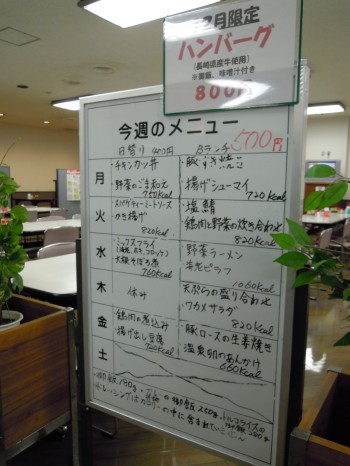 2月限定
ハンバーグ
(長崎県産牛使用)
※御飯、味噌汁付き
800円
今週のメニュー
日替り 400円
Bランチ 500円
月
・チキンカツ丼
・野菜のごま和え
750kcal
・豚すき焼き
・揚げシューマイ
720kcal
火
・スパゲティーミートソース
・かき揚げ
820kcal
・塩鯖
・鶏肉と野菜の炊き合わせ
820kcal
水
・ミックスフライ
・大根そぼろ煮
760kcal
・野菜ラーメン
・半炒ピラフ
1060kcal
木
休み
・天ぷらの盛り合わせ
・ワカメサラダ
820kcal
金
・鶏肉の煮込み
・揚げ出し豆腐
720kcal
・豚ロースの生姜焼き
・温泉卵のあんかけ
660kcal
土